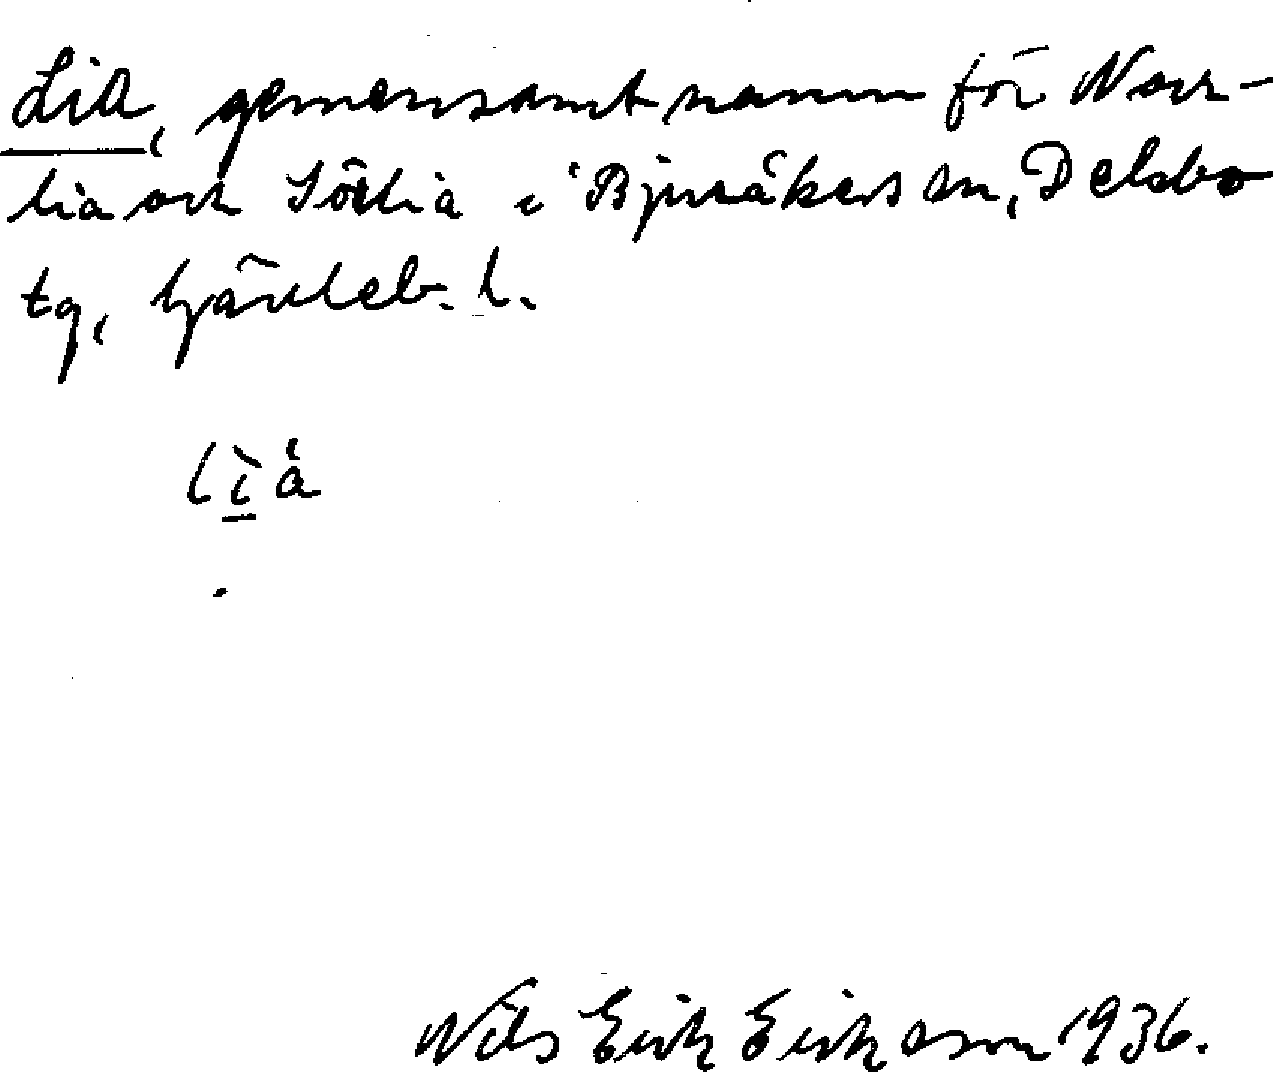 Lia, gemensamt namn för Norr-
lia och Sörlia i Bjuråkers sn, Delsbo
tg, Gävleb. l.
lia
Nils Erik Eriksson 1936.